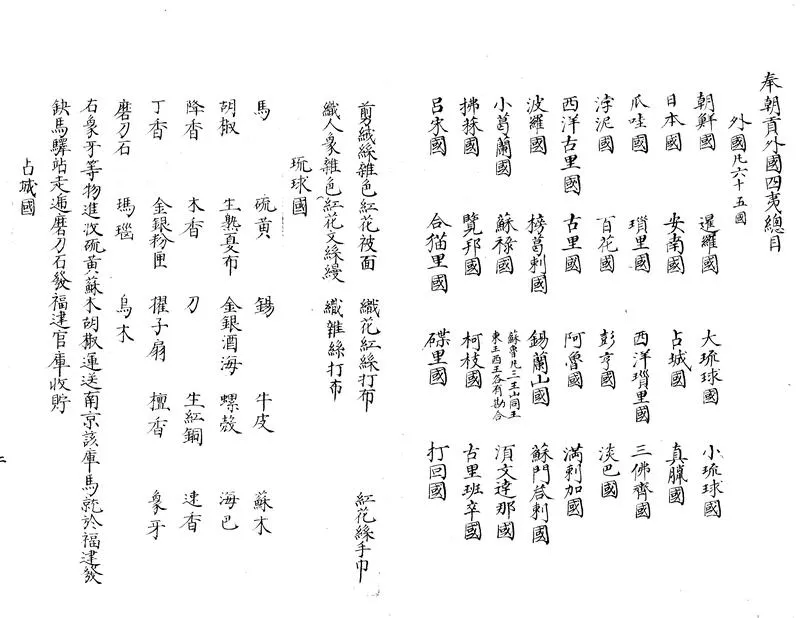 奉朝貢外國四夷總目
外國凡六十五國
朝鮮國 暹羅國 大琉球國 小琉球國
日本國 安南國 占城國 真臘國
爪哇國 瑣里國 西洋瑣里國 三佛齊國
浡泥國 百花國 彭亨國 淡巴國
西洋古里國 古里國 阿魯國 滿剌加國
波羅國 榜葛剌國 錫蘭山國 蘇門荅剌國
小葛蘭國 蘇祿國 蘇魯凡三王山同王東王西王各有勘合 湏文達那國
拂菻國 覽邦國 柯枝國 古里班卒國
呂宋國 合猫里國 碟里國 打回國
剪絨絲雜色紅花被面 織花紅絲打布 紅花絲手巾
織人象雜色紅花文絲縵 織雜絲打布
琉球國
馬 硫黃 錫 牛皮 蘇木
胡椒 生熟夏布 金銀酒海 螺殼 海巴
降香 木香 刀 生紅銅 速香
丁香 金銀粉匣 擢子扇 檀香 象牙
磨刀石 瑪瑙 烏木
右象牙等物進收硫黃蘇木胡椒運送南京該庫馬就於福建發
缺馬驛站走遞磨刀石發福建官庫收貯
占城國
二